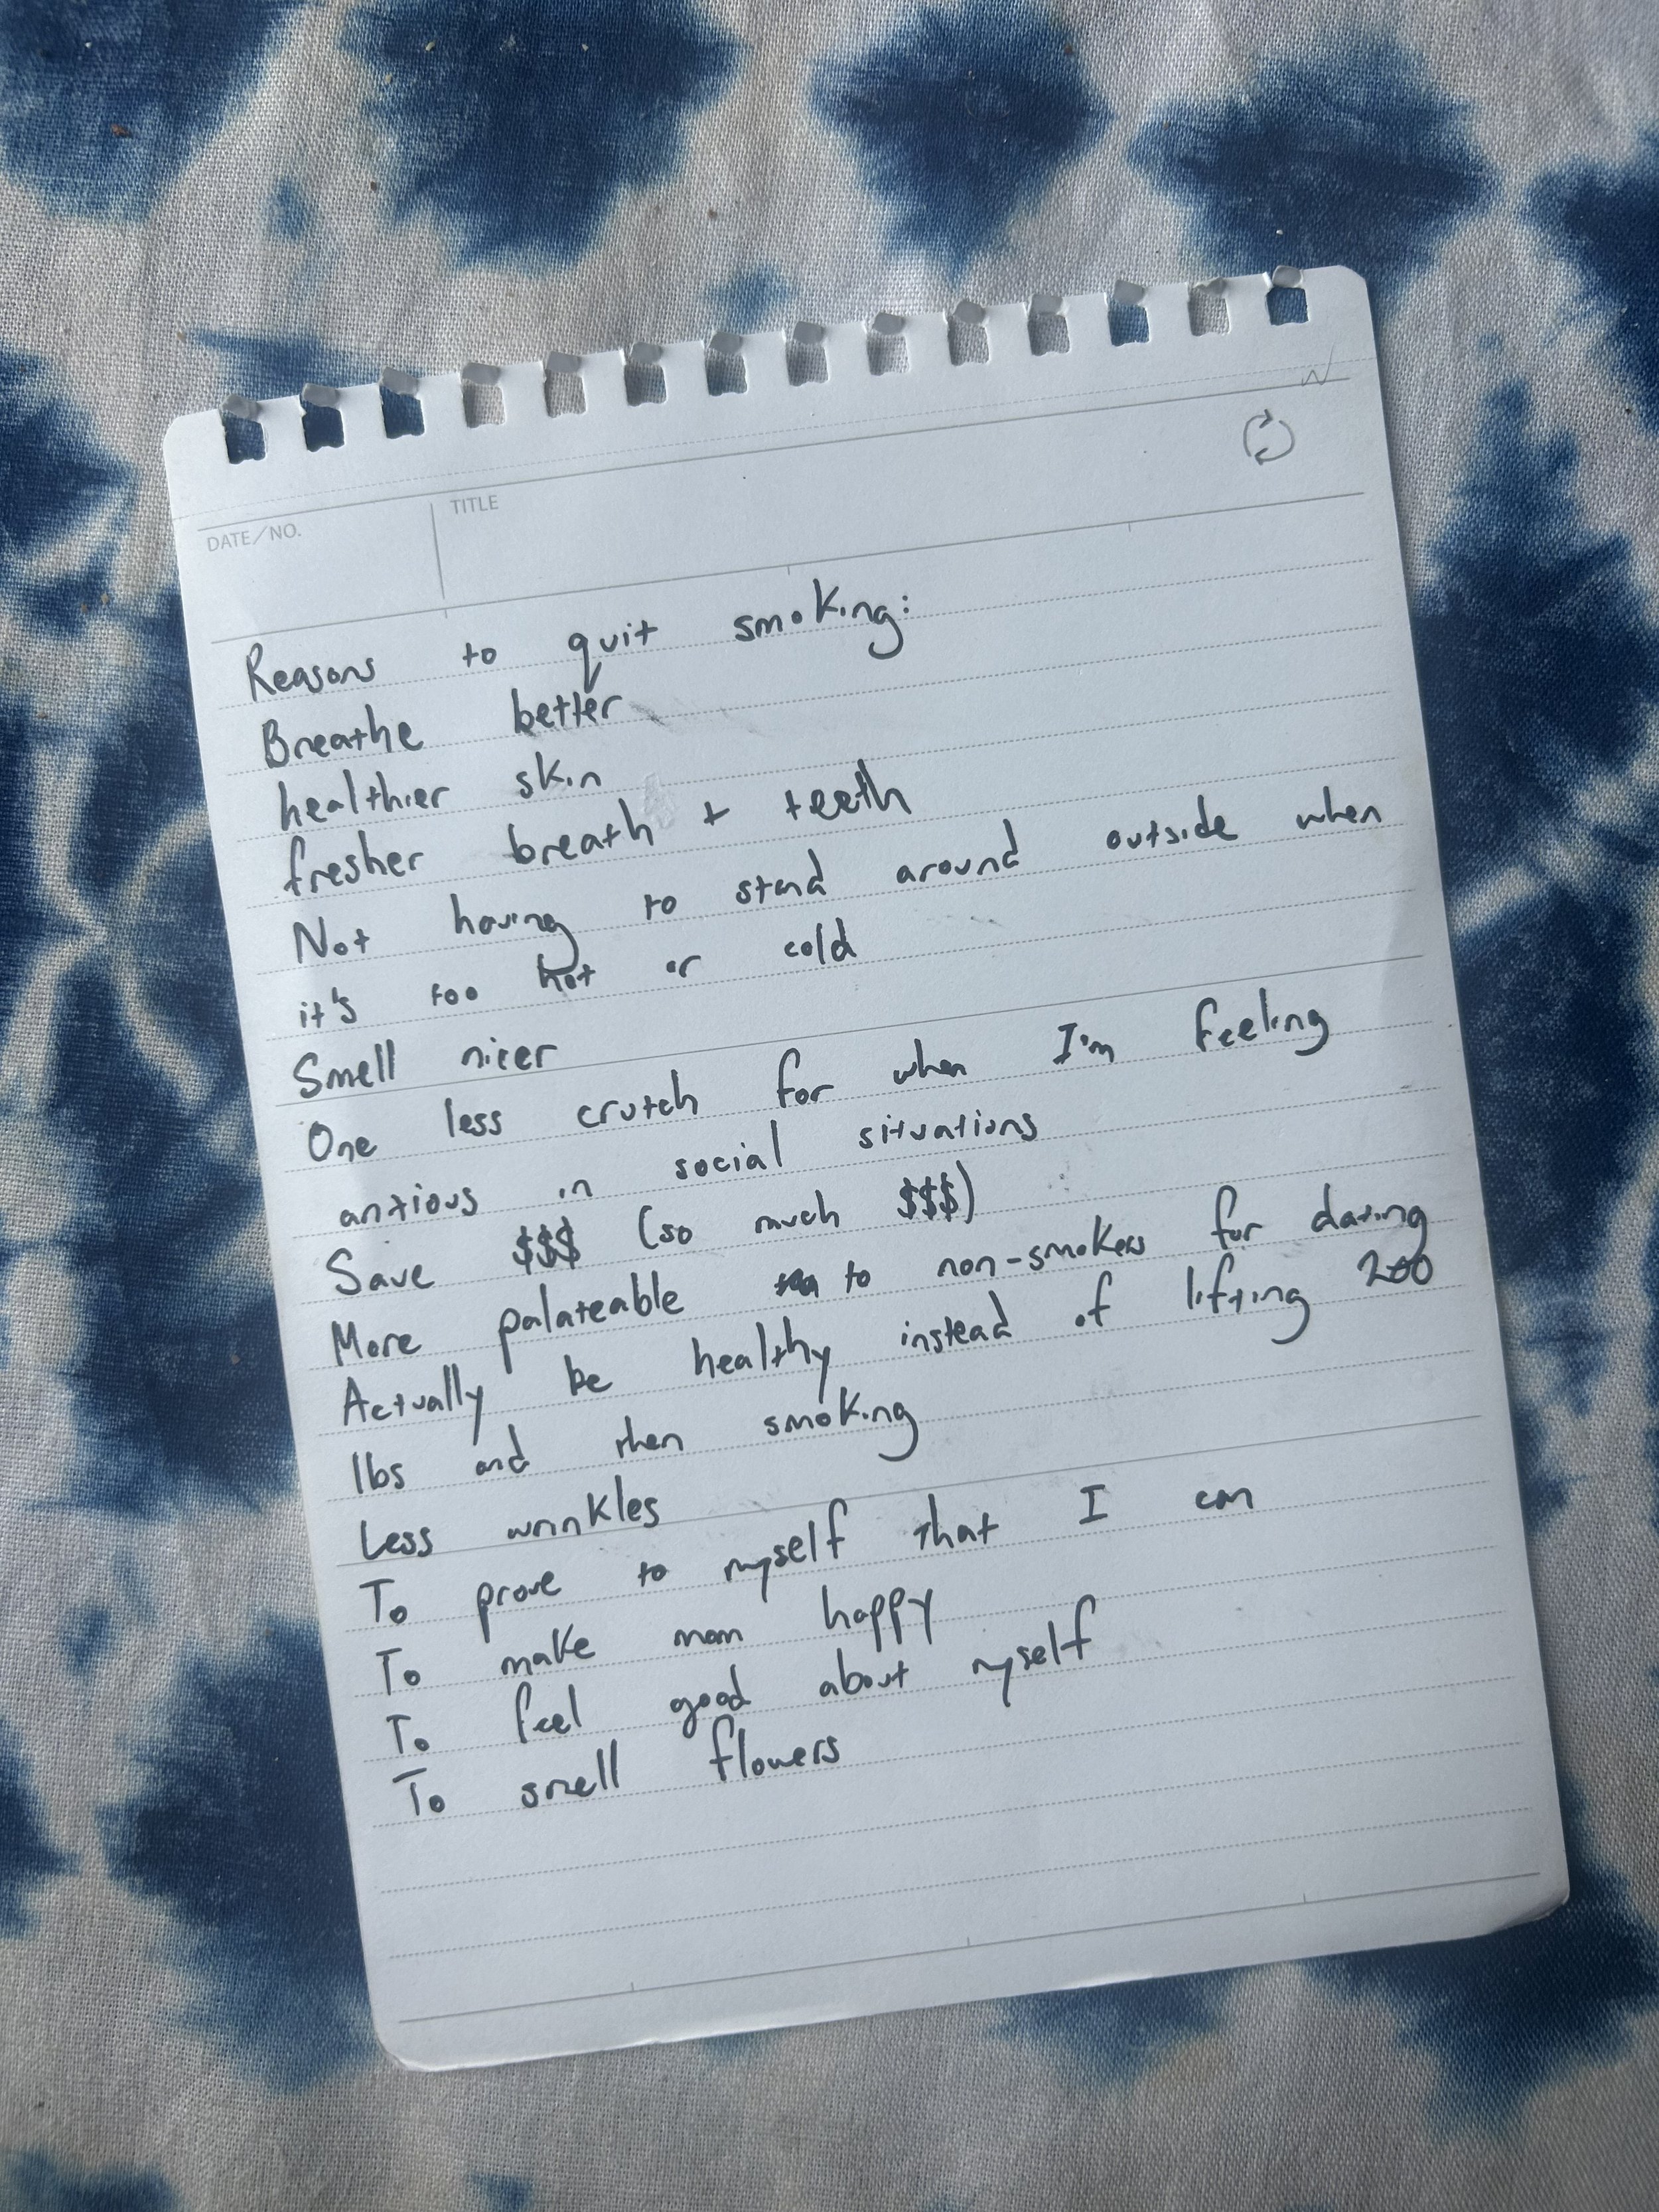 DATE/NO.
TITLE
Reasons to quit smoking:
Breathe better
healthier skin
fresher breath + teeth
Not having to stand around outside when
it's too hot or cold
Smell nicer
One less crutch for when I'm feeling
anxious in social situations
Save $$$ (so much $$$)
More palateable to non-smokers for dating
Actually be healthy instead of lifting 200
lbs and then smoking
Less wrinkles
To prove to myself that I can
To make mom happy
To feel good about myself
To smell flowers